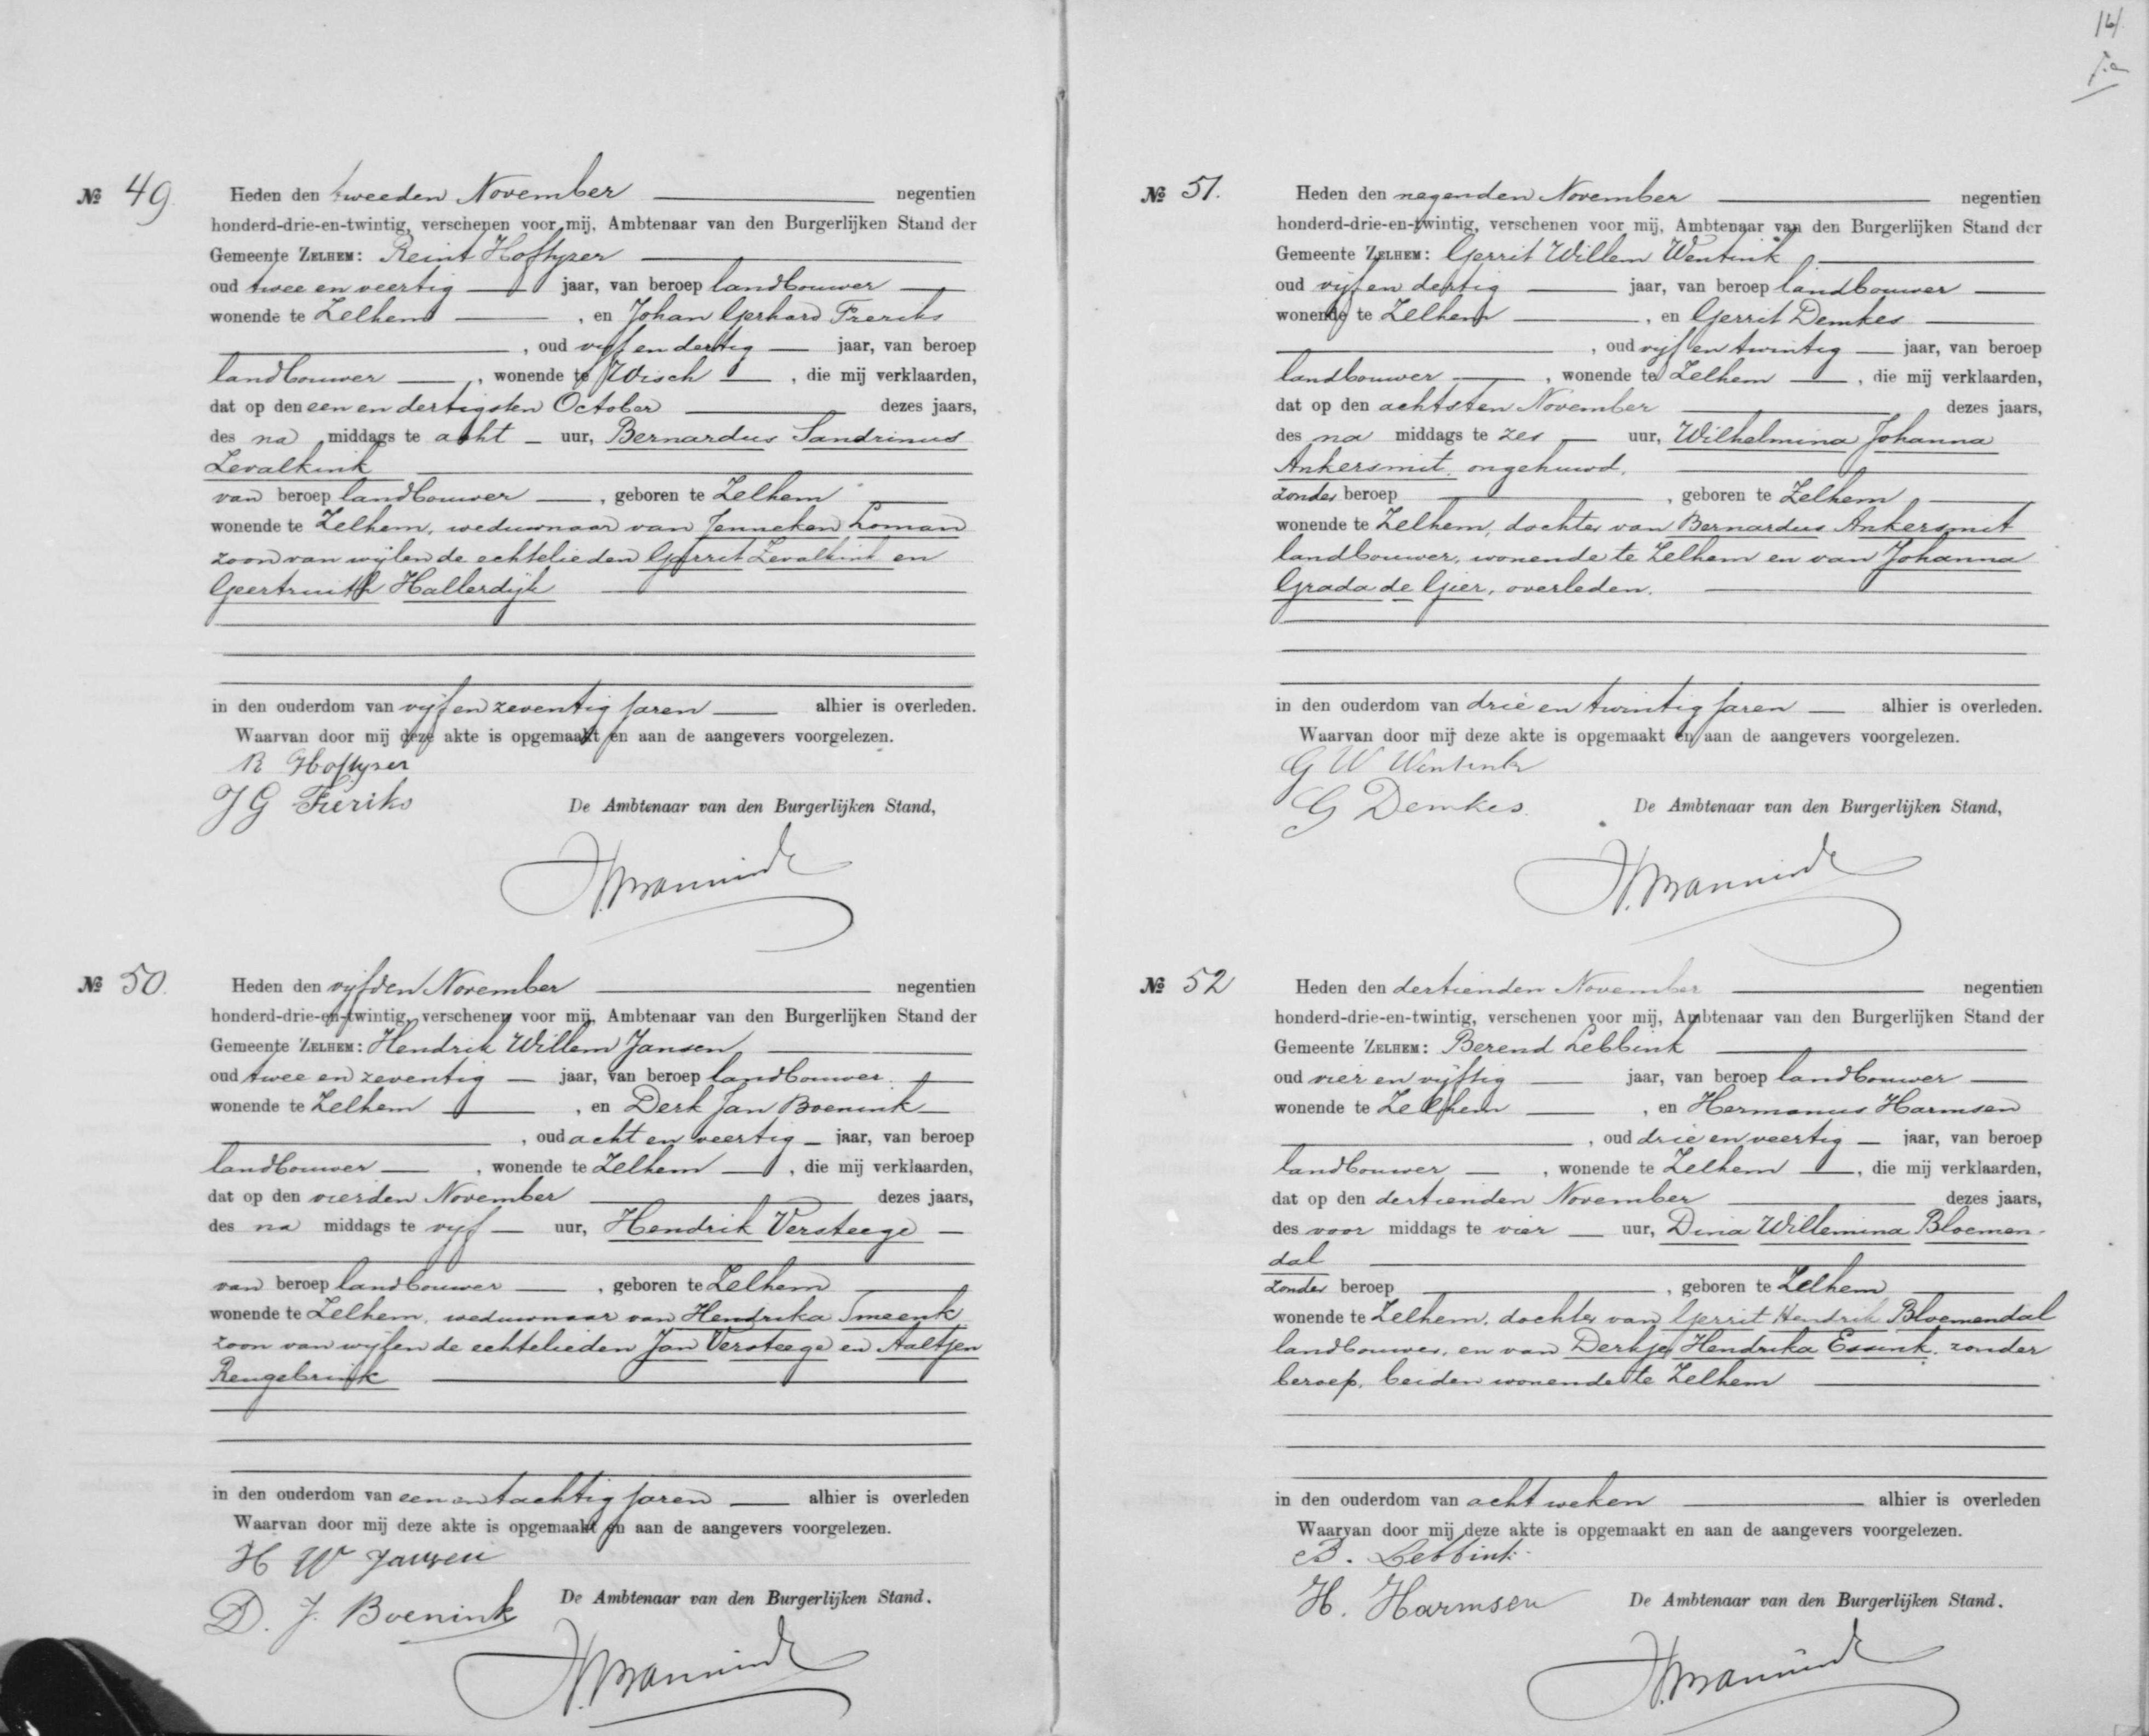 14.
№ 49.
Heden den tweeden November negentien
honderd-drie-en-twintig, verschenen voor mij, Ambtenaar van den Burgerlijken Stand der
Gemeente ZELHEM: Reint Hoftyzer
oud twee en veertig jaar, van beroep landbouwer
wonende te Zelhem, en Johan Gerhard Freriks
, oud vijf en dertig jaar, van beroep
landbouwer, wonende te Wisch, die mij verklaarden,
dat op den een en dertigsten October dezes jaars,
des na middags te acht uur, Bernardus Sandrinus
Zevalkink
van beroep landbouwer, geboren te Zelhem
wonende te Zelhem, weduwnaar van Jenneken Loman
zoon van wijlen de echtelieden Gerrit Zevalkink en
Geertruith Hallerdijk
in den ouderdom van vijf en zeventig jaren alhier is overleden.
Waarvan door mij deze akte is opgemaakt en aan de aangevers voorgelezen.
R Hoftyzer
J G Freriks
De Ambtenaar van den Burgerlijken Stand,
№ 50.
Heden den vijfden November negentien
honderd-drie-en-twintig, verschenen voor mij, Ambtenaar van den Burgerlijken Stand der
Gemeente ZELHEM: Hendrik Willem Jansen
oud twee en zeventig jaar, van beroep landbouwer
wonende te Zelhem, en Derk Jan Boenink
, oud acht en veertig jaar, van beroep
landbouwer, wonende te Zelhem, die mij verklaarden,
dat op den vierden November dezes jaars,
des na middags te vijf uur, Hendrik Versteege
van beroep landbouwer, geboren te Zelhem
wonende te Zelhem, weduwnaar van Hendrika Smeenk
zoon van wijlen de echtelieden Jan Versteege en Aaltjen
Rengebrink
in den ouderdom van een en tachtig jaren alhier is overleden
Waarvan door mij deze akte is opgemaakt en aan de aangevers voorgelezen.
H W Jansen
D. J. Boenink
De Ambtenaar van den Burgerlijken Stand.
№ 51.
Heden den negenden November negentien
honderd-drie-en-twintig, verschenen voor mij, Ambtenaar van den Burgerlijken Stand der
Gemeente ZELHEM: Gerrit Willem Wentink
oud vijf en dertig jaar, van beroep landbouwer
wonende te Zelhem, en Gerrit Demkes
, oud vijf en twintig jaar, van beroep
landbouwer, wonende te Zelhem, die mij verklaarden,
dat op den achtsten November dezes jaars,
des na middags te zes uur, Wilhelmina Johanna
Ankersmit, ongehuwd,
zonder beroep, geboren te Zelhem
wonende te Zelhem, dochter van Bernardus Ankersmit
landbouwer, wonende te Zelhem en van Johanna
Grada de Gier, overleden.
in den ouderdom van drie en twintig jaren alhier is overleden.
Waarvan door mij deze akte is opgemaakt en aan de aangevers voorgelezen.
G W Wentink
G Demkes.
De Ambtenaar van den Burgerlijken Stand,
№ 52
Heden den dertienden November negentien
honderd-drie-en-twintig, verschenen voor mij, Ambtenaar van den Burgerlijken Stand der
Gemeente ZELHEM: Berend Lebbink
oud vier en vijftig jaar, van beroep landbouwer
wonende te Zelhem, en Hermanus Harmsen
, oud drie en veertig jaar, van beroep
landbouwer, wonende te Zelhem, die mij verklaarden,
dat op den dertienden November dezes jaars,
des voor middags te vier uur, Dina Willemina Bloemen-
dal
zonder beroep, geboren te Zelhem
wonende te Zelhem, dochter van Gerrit Hendrik Bloemendal
landbouwer, en van Derkje Hendrika Essink, zonder
beroep, beiden wonende te Zelhem
in den ouderdom van acht weken alhier is overleden
Waarvan door mij deze akte is opgemaakt en aan de aangevers voorgelezen.
B. Lebbink
H. Harmsen
De Ambtenaar van den Burgerlijken Stand.